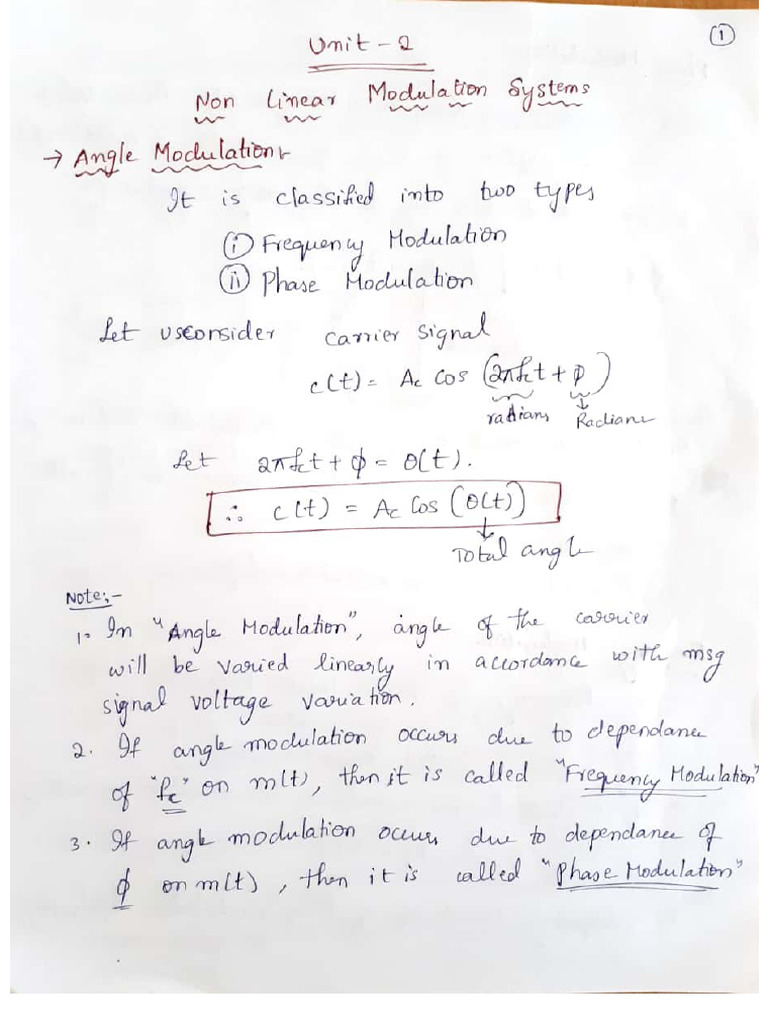 ①
Unit - 2
Non Linear Modulation Systems
→ Angle Modulation:-
It is classified into two types
(i) Frequency Modulation
(ii) Phase Modulation
Let us consider carrier signal
c(t) = Ac Cos (2πfct + φ)
radians Radians
Let 2πfct + φ = θ(t).
∴ c(t) = Ac Cos (θ(t))
Total angle
Note:-
1. In "Angle Modulation", angle of the carrier
will be varied linearly in accordance with msg
signal voltage variation.
2. If angle modulation occurs due to dependance
of "fc" on m(t), then it is called "Frequency Modulation"
3. If angle modulation occurs due to dependance of
φ on m(t), then it is called "Phase Modulation"